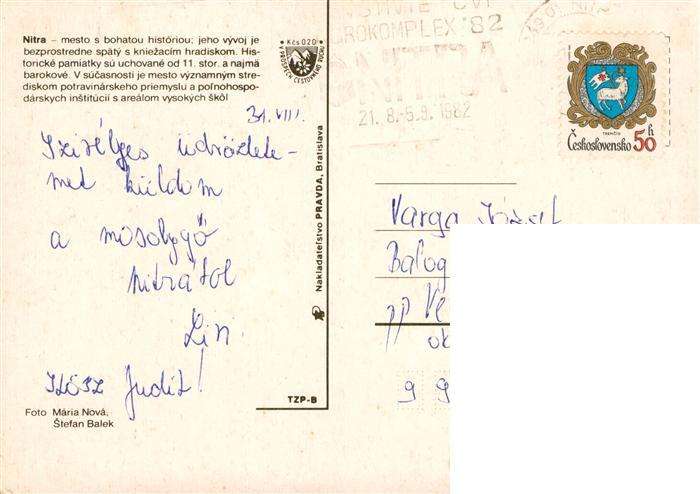 Nitra – mesto s bohatou históriou; jeho vývoj je
bezprostredne spätý s kniežacím hradiskom. His-
torické pamiatky sú uchované od 11. stor. a najmä
barokové. V súčasnosti je mesto významným stre-
diskom potravinárskeho priemyslu a poľnohospo-
dárskych inštitúcií s areálom vysokých škôl
Kčs 0,20
31. VIII.
Szivélyes üdvözlete-
met küldöm
a mosolygó
Nitrától
Judit!
Foto Mária Nová,
Štefan Balek
TZP-B
Nakladateľstvo PRAVDA, Bratislava
ROKOMPLEX '82
NITRA
21. 8.-5.9. 1982
TRENČÍN
Československo 50 h
Varga József
Balog
pp Ve
ok
9 9